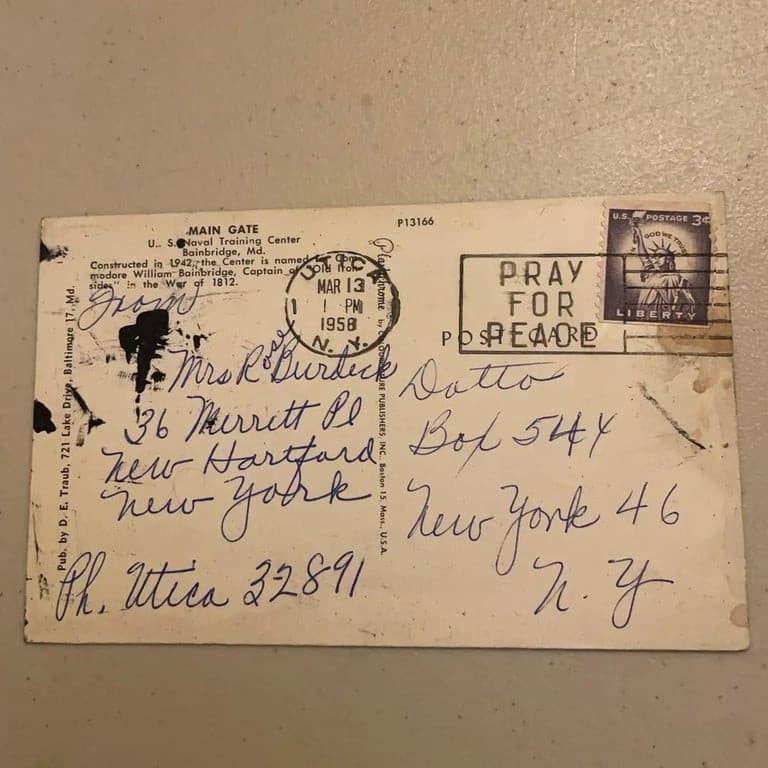 MAIN GATE
U. S. Naval Training Center
Bainbridge, Md.
Constructed in 1942, the Center is named Com-
modore William Bainbridge, Captain of "Old Iron-
sides" in the War of 1812.
P13166
Pub. by D. E. Traub, 721 Lake Drive, Baltimore 17, Md.
Plastichrome by COLOURPICTURE PUBLISHERS, INC., Boston 15, Mass., U.S.A.
UTICA
MAR 13
1 PM
1958
N. Y.
PRAY
FOR
PEACE
POST CARD
U.S. POSTAGE 3¢
IN GOD WE TRUST
LIBERTY
From
Mrs Rose Burdick
36 Merrett Pl
New Hartford
New York
Ph. Utica 32891
Dotto
Box 544
New York 46
N. Y